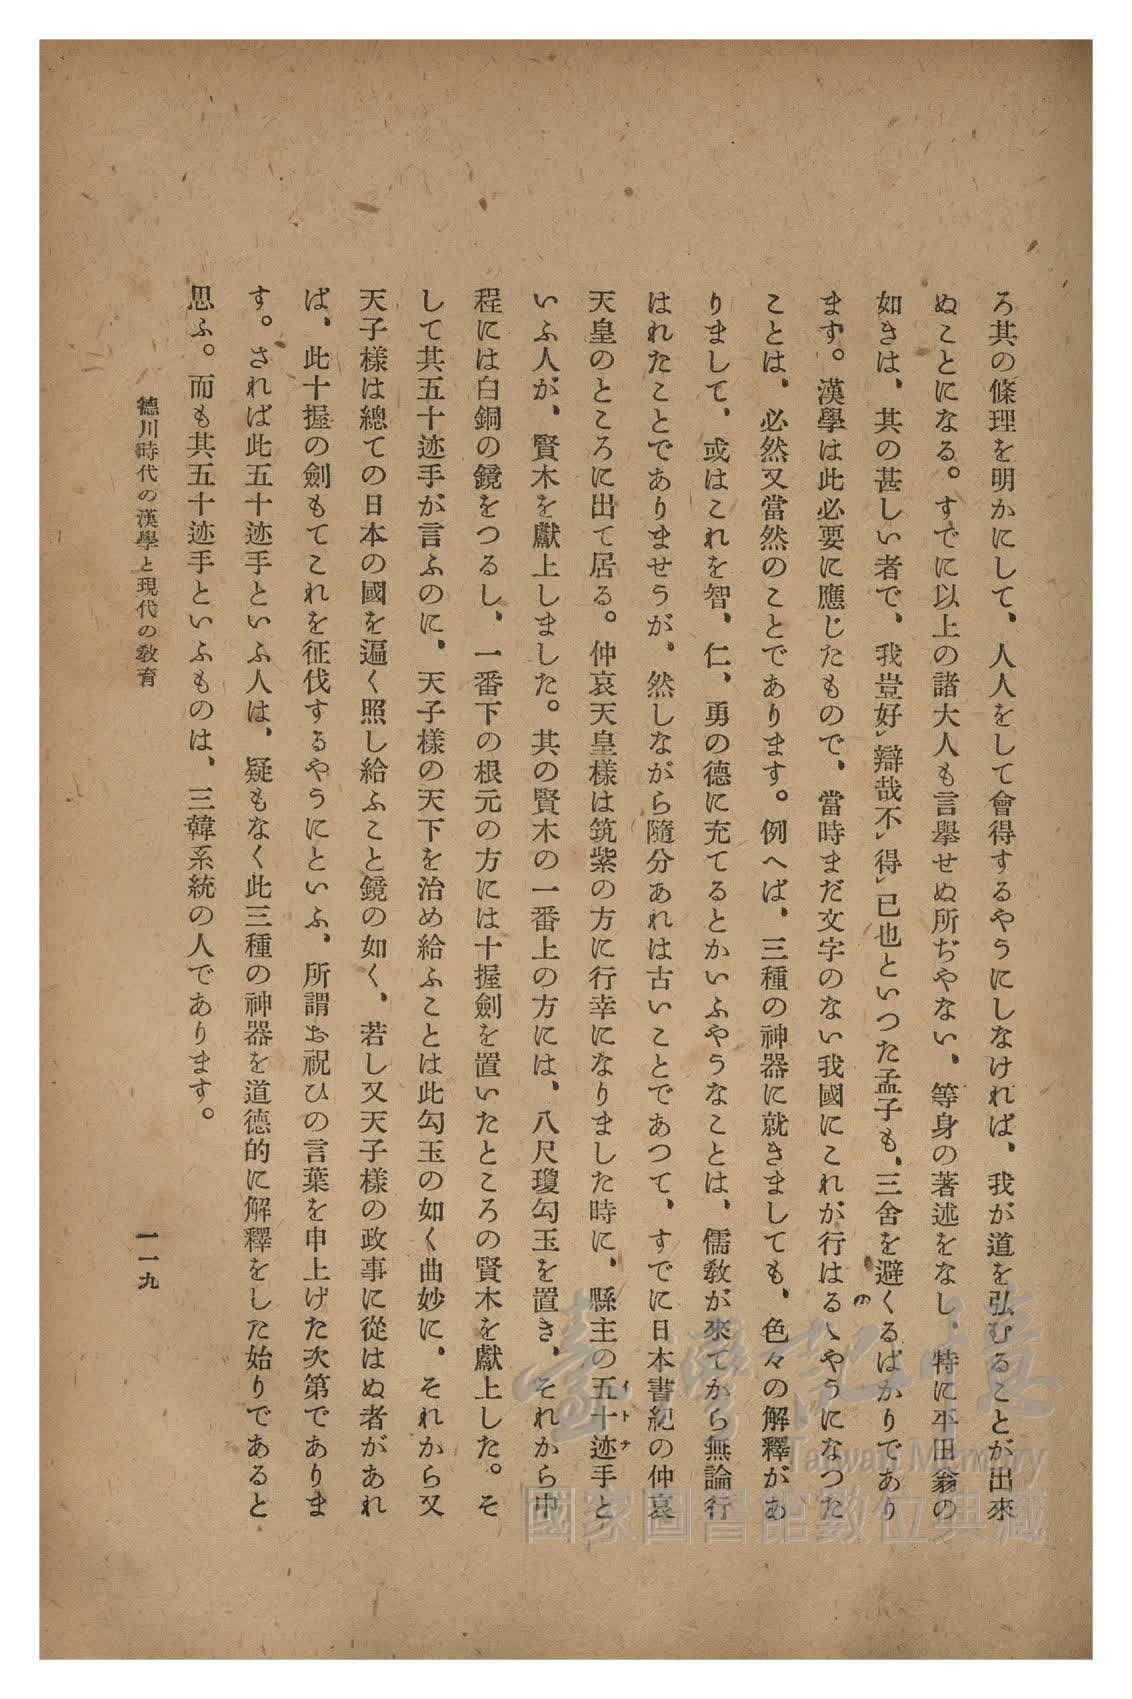 ろ其の條理を明かにして、人人をして會得するやうにしなければ、我が道を弘むることが出來
ぬことになる。すでに以上の諸大人も言擧せぬ所ぢやない、等身の著述をなし、特に平田翁の
如きは、其の甚しい者で、我豈好㆑辯哉不㆑得㆑已也といつた孟子も、三舍を避くるばかりであり
ます。漢學は此必要に應じたもので、當時まだ文字のない我國にこれが行はるゝやうになつた
の
ことは、必然又當然のことであります。例へば、三種の神器に就きましても、色々の解釋があ
りまして、或はこれを智、仁、勇の德に充てるとかいふやうなことは、儒敎が來てから無論行
はれたことでありませうが、然しながら隨分あれは古いことであつて、すでに日本書紀の仲哀
天皇のところに出て居る。仲哀天皇樣は筑紫の方に行幸になりました時に、縣主の五十迹手と
イトテ
いふ人が、賢木を獻上しました。其の賢木の一番上の方には、八尺瓊勾玉を置き、それから中
程には白銅の鏡をつるし、一番下の根元の方には十握劍を置いたところの賢木を獻上した。そ
して其五十迹手が言ふのに、天子樣の天下を治め給ふことは此勾玉の如く曲妙に、それから又
天子樣は總ての日本の國を遍く照し給ふこと鏡の如く、若し又天子樣の政事に從はぬ者があれ
ば、此十握の劍もてこれを征伐するやうにといふ、所謂お祝ひの言葉を申上げた次第でありま
す。されば此五十迹手といふ人は、疑もなく此三種の神器を道德的に解釋をした始りであると
思ふ。而も其五十迹手といふものは、三韓系統の人であります。
德川時代の漢學と現代の敎育
一一九
臺灣記憶
Taiwan Memory
國家圖書館數位典藏